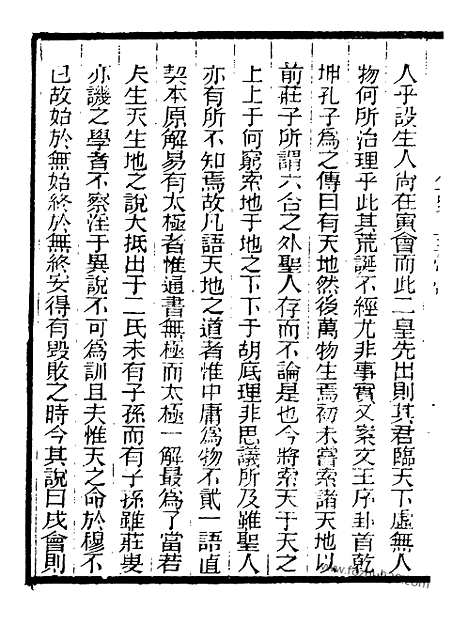 人乎設生人尚在寅會而此二皇先出則其君臨天下虛無人
物何所治理乎此其荒誕不經尤非事實又案文王序卦首乾
坤孔子爲之傳曰有天地然後萬物生焉初未嘗索諸天地以
前莊子所謂六合之外聖人存而不論是也今將索天于天之
上上于何窮索地于地之下下于胡底理非思議所及雖聖人
亦有所不知焉故凡語天地之道者惟中庸爲物不貳一語直
契本原解易有太極者惟通書無極而太極一解最爲了當若
夫生天生地之說大抵出于二氏未有子孫而有子孫雖莊叟
亦譏之學者不察淫于異說不可爲訓且夫惟天之命於穆不
已故始於無始終於無終安得有毀敗之時今其說曰戌會則